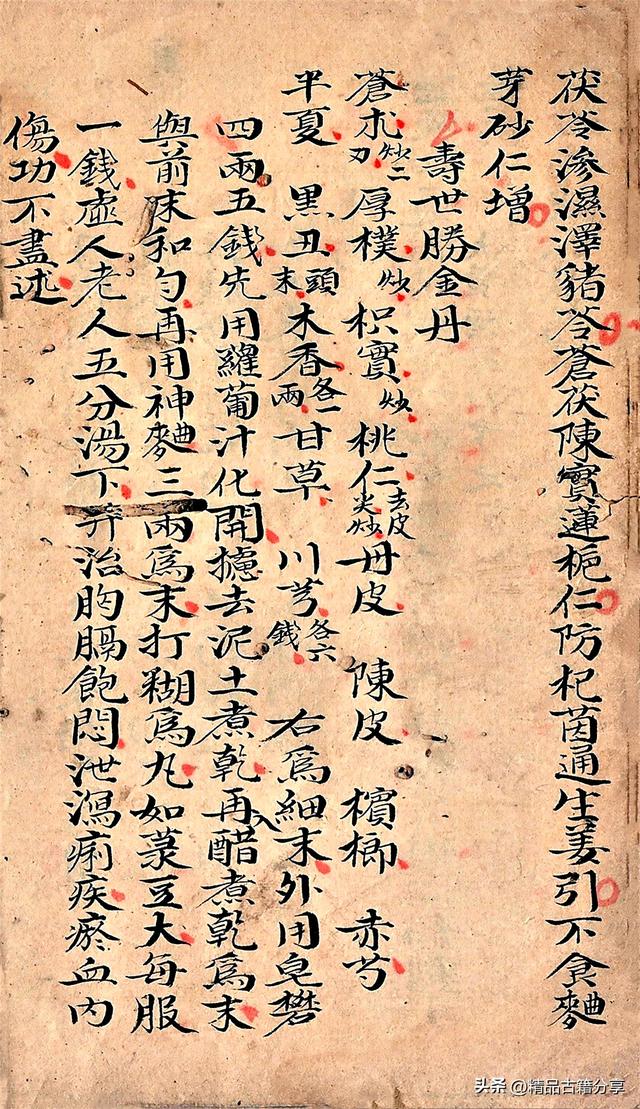 茯苓滲濕澤豬苓蒼茯陳實蓮梔仁防杞茵通生姜引不食麯
芽砂仁增
壽世勝金丹
蒼朮炒二刃厚樸炒枳實炒桃仁去皮尖炒丹皮陳皮檳榔赤芍
半夏黑丑頭末木香各一兩甘草川芎各六錢右為細末外用皂礬
四兩五錢先用蘿葡汁化開攄去泥土煮乾再入醋煮乾為末
與前末和勻再用神麯三兩為末打糊為丸如菉豆大每服
一錢虛人老人五分湯下弄治胸膈飽悶泄瀉痢疾瘀血內
傷功不盡述
头条 @精品古籍分享